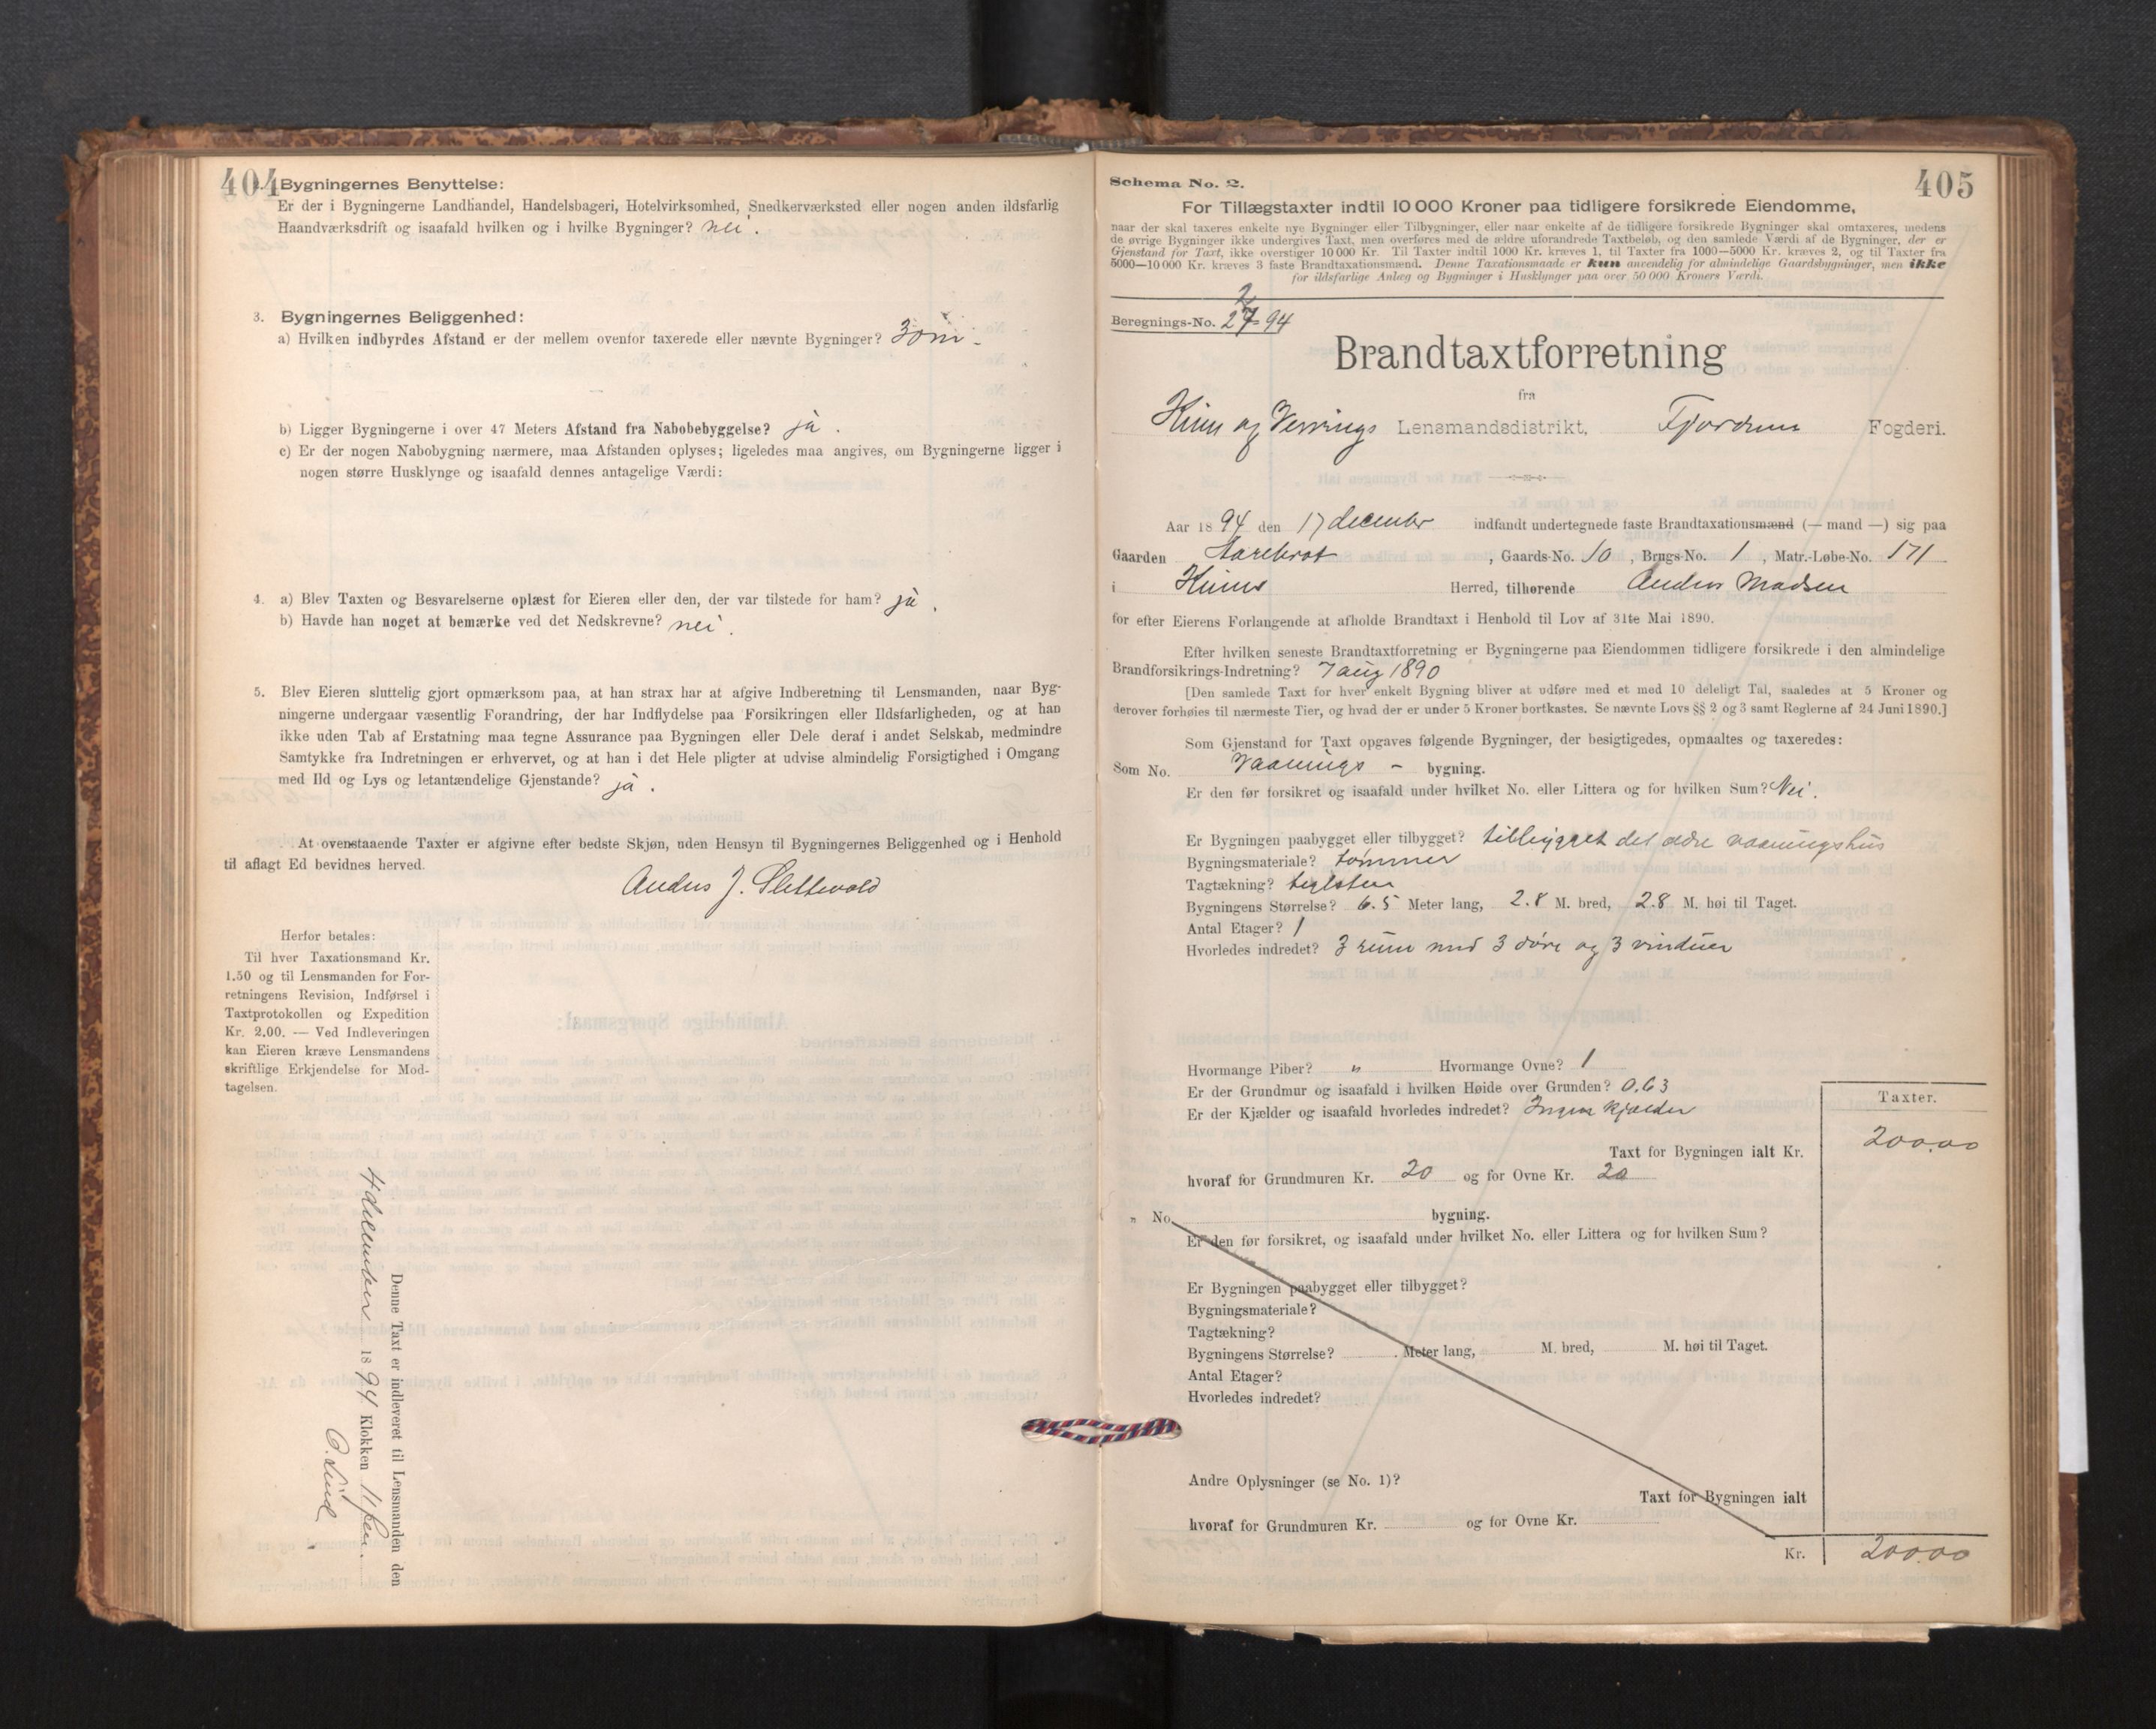 404
Bygningernes Benyttelse:
Er der i Bygningerne Landhandel, Handelsbageri, Hotelvirksomhed, Snedkerværksted eller nogen anden ildsfarlig
Haandværksdrift og isaafald hvilken og i hvilke Bygninger? nei.
3. Bygningernes Beliggenhed:
a) Hvilken indbyrdes Afstand er der mellem ovenfor taxerede eller nævnte Bygninger? 30m.
b) Ligger Bygningerne i over 47 Meters Afstand fra Nabobebyggelse? ja.
c) Er der nogen Nabobygning nærmere, maa Afstanden oplyses; ligeledes maa angives, om Bygningerne ligger i
nogen større Husklynge og isaafald dennes antagelige Værdi:
4. a) Blev Taxten og Besvarelserne oplæst for Eieren eller den, der var tilstede for ham? ja.
b) Havde han noget at bemærke ved det Nedskrevne? nei.
5. Blev Eieren sluttelig gjort opmærksom paa, at han strax har at afgive Indberetning til Lensmanden, naar Byg-
ningerne undergaar væsentlig Forandring, der har Indflydelse paa Forsikringen eller Ildsfarligheden, og at han
ikke uden Tab af Erstatning maa tegne Assurance paa Bygningen eller Dele deraf i andet Selskab, medmindre
Samtykke fra Indretningen er erhvervet, og at han i det Hele pligter at udvise almindelig Forsigtighed i Omgang
med Ild og Lys og letantændelige Gjenstande? ja.
At ovenstaaende Taxter er afgivne efter bedste Skjøn, uden Hensyn til Bygningernes Beliggenhed og i Henhold
til aflagt Ed bevidnes herved.
Anders J. Slettevold
Herfor betales:
Til hver Taxationsmand Kr.
1.50 og til Lensmanden for For-
retningens Revision, Indførsel i
Taxtprotokollen og Expedition
Kr. 2.00. — Ved Indleveringen
kan Eieren kræve Lensmandens
skriftlige Erkjendelse for Mod-
tagelsen.
Denne Taxt er indleveret til Lensmanden den
december 1894 Klokken 11
O. Lind
405
Schema No. 2.
For Tillægstaxter indtil 10 000 Kroner paa tidligere forsikrede Eiendomme,
naar der skal taxeres enkelte nye Bygninger eller Tilbygninger, eller naar enkelte af de tidligere forsikrede Bygninger skal omtaxeres, medens
de øvrige Bygninger ikke undergives Taxt, men overføres med de ældre uforandrede Taxtbeløb, og den samlede Værdi af de Bygninger, der er
Gjenstand for Taxt, ikke overstiger 10 000 Kr. Til Taxter indtil 1000 Kr. kræves 1, til Taxter fra 1000—5000 Kr. kræves 2, og til Taxter fra
5000—10 000 Kr. kræves 3 faste Brandtaxationsmænd. Denne Taxationsmaade er kun anvendelig for almindelige Gaardsbygninger, men ikke
for ildsfarlige Anlæg og Bygninger i Husklynger paa over 50 000 Kroners Værdi.
Beregnings-No. 27 94
Brandtaxtforretning
fra
Kinn og Vevrings Lensmandsdistrikt, Fjordene Fogderi.
Aar 1894 den 17 december indfandt undertegnede faste Brandtaxationsmænd (— mand —) sig paa
Gaarden Aarebrot, Gaards-No. 10, Brugs-No. 1, Matr.-Løbe-No. 171
i Kinns Herred, tilhørende Anders Madsen
for efter Eierens Forlangende at afholde Brandtaxt i Henhold til Lov af 31te Mai 1890.
Efter hvilken seneste Brandtaxtforretning er Bygningerne paa Eiendommen tidligere forsikrede i den almindelige
Brandforsikrings-Indretning? 7 aug 1890
[Den samlede Taxt for hver enkelt Bygning bliver at udføre med et med 10 deleligt Tal, saaledes at 5 Kroner og
derover forhøies til nærmeste Tier, og hvad der er under 5 Kroner bortkastes. Se nævnte Lovs §§ 2 og 3 samt Reglerne af 24 Juni 1890.]
Som Gjenstand for Taxt opgaves følgende Bygninger, der besigtigedes, opmaaltes og taxeredes:
Som No. Vaanings - bygning.
Er den før forsikret og isaafald under hvilket No. eller Littera og for hvilken Sum? Nei.
Er Bygningen paabygget eller tilbygget? tilbygget det ældre vaaningshus
Bygningsmateriale? tømmer
Tagtækning? teglsten
Bygningens Størrelse? 6.5 Meter lang, 2.8 M. bred, 2.8 M. høi til Taget.
Antal Etager? 1
Hvorledes indredet? 3 rum med 3 døre og 3 vinduer
Hvormange Piber? " Hvormange Ovne? 1
Er der Grundmur og isaafald i hvilken Høide over Grunden? 0.63
Er der Kjælder og isaafald hvorledes indredet? Ingen kjælder
Taxter.
Taxt for Bygningen ialt Kr. 200.00
hvoraf for Grundmuren Kr. 20 og for Ovne Kr. 20
" No. bygning.
Er den før forsikret, og isaafald under hvilket No. eller Littera og for hvilken Sum?
Er Bygningen paabygget eller tilbygget?
Bygningsmateriale?
Tagtækning?
Bygningens Størrelse? Meter lang, M. bred, M. høi til Taget.
Antal Etager?
Hvorledes indredet?
Andre Oplysninger (se No. 1)?
Taxt for Bygningen ialt
hvoraf for Grundmuren Kr. og for Ovne Kr.
Kr. 200.00